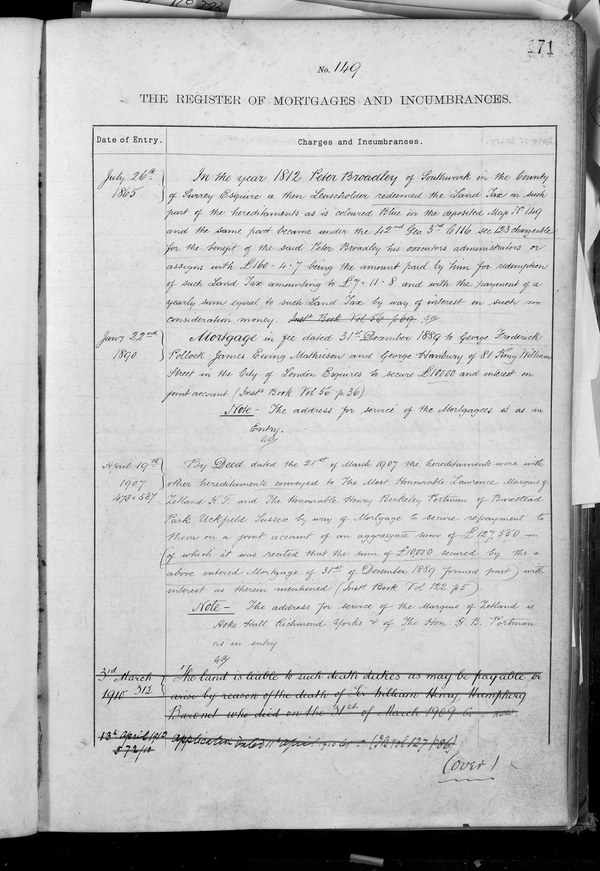 171
No. 149
THE REGISTER OF MORTGAGES AND INCUMBRANCES.
Date of Entry.
Charges and Incumbrances.
July 26th 1865
In the year 1812 Peter Broadley of Southwark in the County
of Surrey Esquire a then Leaseholder redeemed the Land Tax in such
part of the hereditaments as is coloured Blue in the deposited Map No 149
and the same part became under the 42nd Geo 3rd C 116 sec 123 chargeable
for the benefit of the said Peter Broadley his executors administrators or
assigns with £160 . 4 . 7 being the amount paid by him for redemption
of such Land Tax amounting to £7 . 11 . 8 and with the payment of a
yearly sum equal to such Land Tax by way of interest on such
consideration money. Inst. Book Vol 56 p 69
Jany 22nd 1890
Mortgage in fee dated 31st December 1889 to George Frederick
Pollock James Ewing Matheson and George Hanbury of 81 King William
Street in the City of London Esquires to secure £10,000 and interest on
joint account (Inst. Book Vol 56 p 36)
Note - The address for service of the Mortgagees is as in
Entry.
April 19th 1907
By Deed dated the 21st of March 1907 the hereditaments were with
other hereditaments conveyed to The Most Honourable Lawrence Marquis of
Zetland K.T. and The Honourable Henry Berkeley Portman of Buxstead
Park Uckfield Sussex by way of Mortgage to secure repayment to
them on a joint account of an aggregate sum of £127,550
(of which it was recited that the sum of £10,000 secured by the
above entered Mortgage of 31st of December 1889 formed part) with
interest as therein mentioned (Inst. Book Vol 122 p 5)
Note - The address for service of the Marquis of Zetland is
Aske Hall Richmond Yorks & of The Hon. H. B. Portman
as in entry
3rd March 1910 313
The land is liable to such death duties as may be payable or
arise by reason of the death of Sir William Henry Humphery
Baronet who died on the 31st of March 1909
13th April 1910
application dated 11th April
(over)